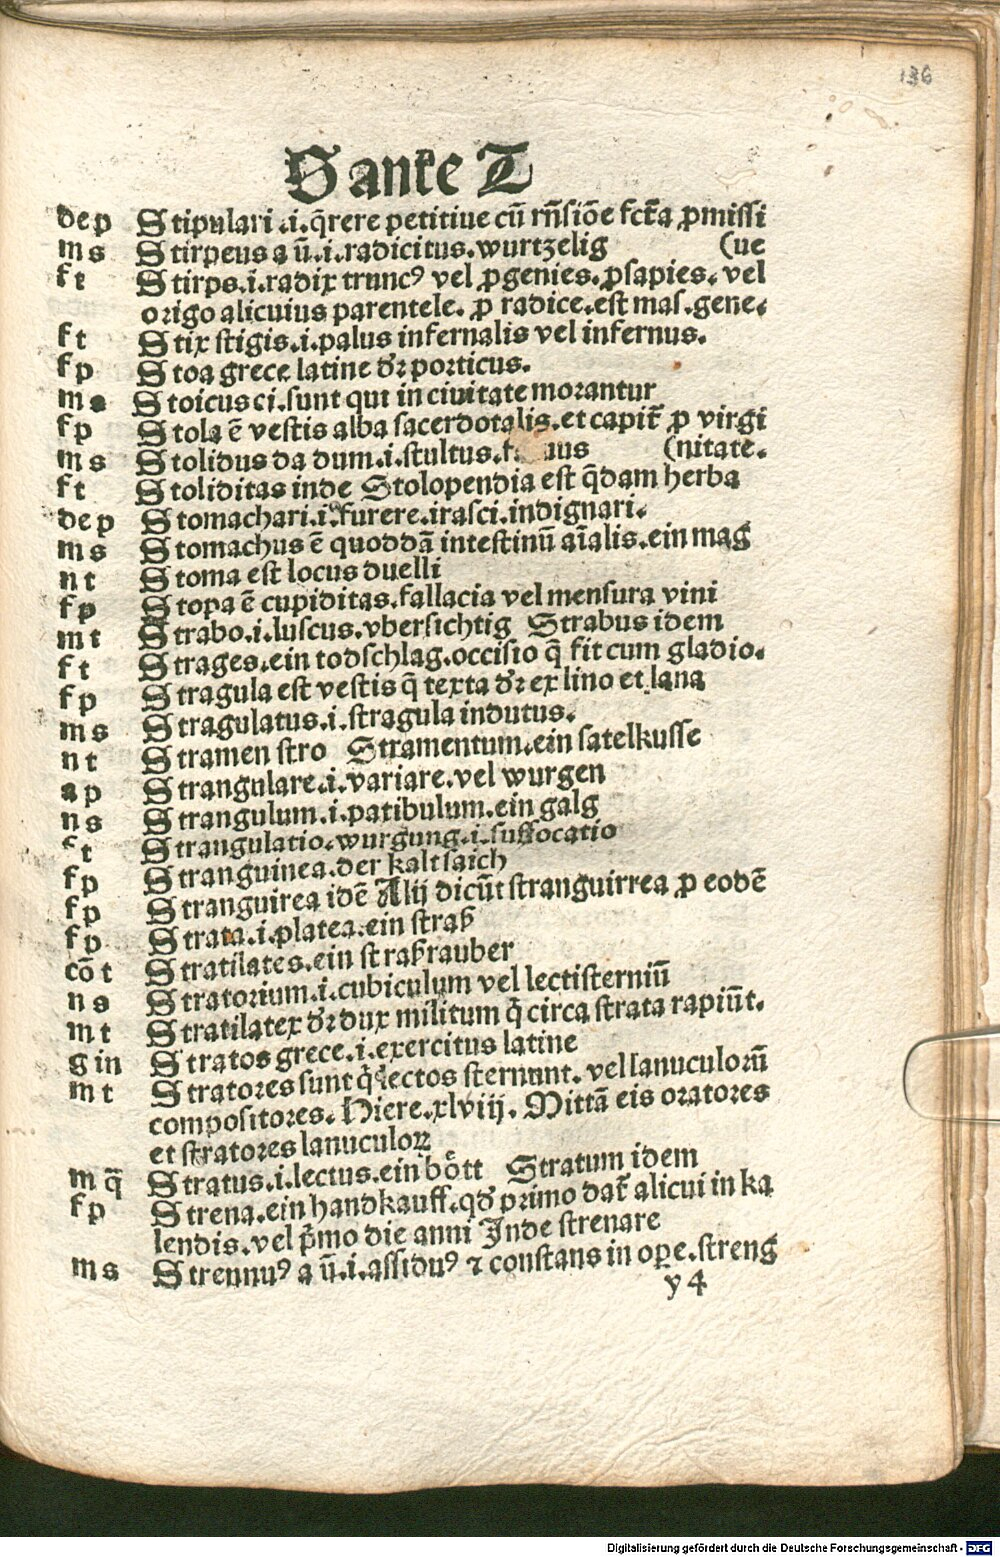 136
S anᵗe T
de p Stipulari .i. q̄rere petitiue cū rn̄siōe fct̄a ꝓmissi
m s Stirpeus a ū .i. radicitus. wurtzelig (ue
f t Stirps .i. radix truncꝰ vel ꝓgenies. ꝓsapies. vel
origo alicuius parentele. ꝓ radice. est mas. gene.
f t Stix stigis .i. palus infernalis vel infernus.
f p Stoa grece latine dr̄ porticus.
m s Stoicus ci. sunt qui in ciuitate morantur
f p Stola ē vestis alba sacerdotalis. et capit̄ ꝓ virgi
m s Stolidus da dum .i. stultus. (nitate.
f t Stoliditas inde Stolopendia est q̄dam herba
de p Stomachari .i. furere. irasci. indignari.
m s Stomachus ē quoddā intestinū aīalis. ein mag
n t Stoma est locus duelli
f p Stopa ē cupiditas. fallacia vel mensura vini
m t Strabo .i. luscus. vbersichtig Strabus idem
f t Strages. ein todschlag. occisio q̄ fit cum gladio.
f p Stragula est vestis q̄ texta dr̄ ex lino et lana
m s Stragulatus .i. stragula indutus.
n t Stramen stro Stramentum. ein satelkusse
a p Strangulare .i. variare. vel wurgen
n s Strangulum .i. patibulum. ein galg
f t Strangulatio. wurgung .i. suffocatio
f p Stranguinea. der kalt saich
f p Stranguirea idē Alij dicūt stranguirrea ꝓ eodē
f p Strata .i. platea. ein straß
cō t Stratilates. ein straßrauber
n s Stratorium .i. cubiculum vel lectisterniū
m t Stratilatex dr̄ dux militum q̄ circa strata rapiūt.
g in Stratos grece .i. exercitus latine
m t Stratores sunt q̄ lectos sternunt. vel lanuculorū
compositores. Hiere. xlviij. Mittā eis oratores
et stratores lanuculoꝝ
m q̄ Stratus .i. lectus. ein bött Stratum idem
f p Strena. ein handkauff. qd̄ primo dat̄ alicui in ka
lendis. vel p̄mo die anni Inde strenare
m s Strennuꝰ a ū .i. assiduꝰ ⁊ constans in oꝑe. streng
y 4
Digitalisierung gefördert durch die Deutsche Forschungsgemeinschaft - DFG